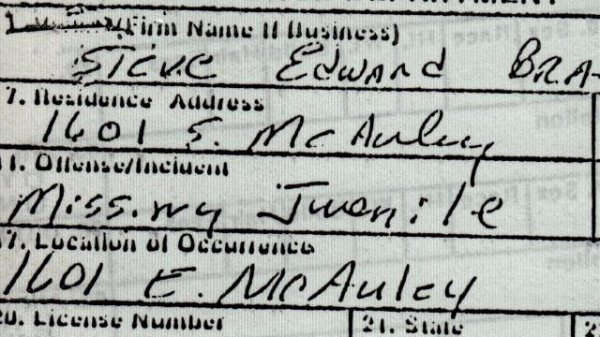 (Firm Name If Business)
STEVE EDWARD BRA
7. Residence Address
1601 S. McAuley
11. Offense/Incident
Missing Juvenile
17. Location of Occurrence
1601 E. McAuley
20. License Number 21. State 2